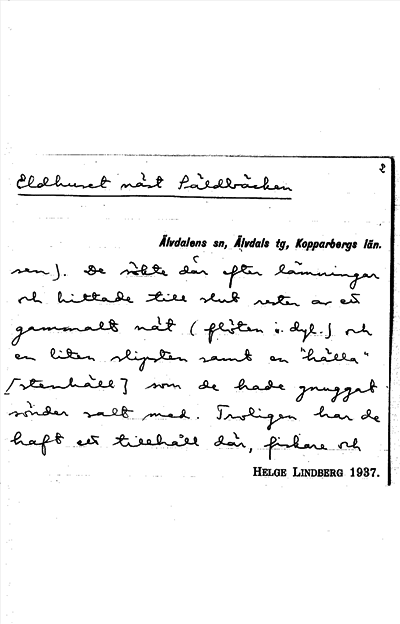 2
Eldhuset näst Päldbäcken
Älvdalens sn, Älvdals tg, Kopparbergs län.
sen]. De sökte där efter lämningar
och hittade till slut rester av ett
gammalt nät (flöten o. dyl.) och
en liten slipsten samt en "hälla"
[stenhäll] som de hade gnuggat
sönder salt med. Troligen har de
haft ett tillhåll där, fiskare och
HELGE LINDBERG 1937.